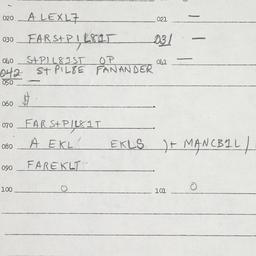 020 A LEXL7 021 —
030 FARS+PILR2T 031 —
040 S+PIL82ST OP 041 —
042 S+PILBE FANANDER
050 —
060 $
070 FARS+PILR1T
080 A EKL EKLS )+ MANCB1L /
090 FAREKLT
100 0 101 0